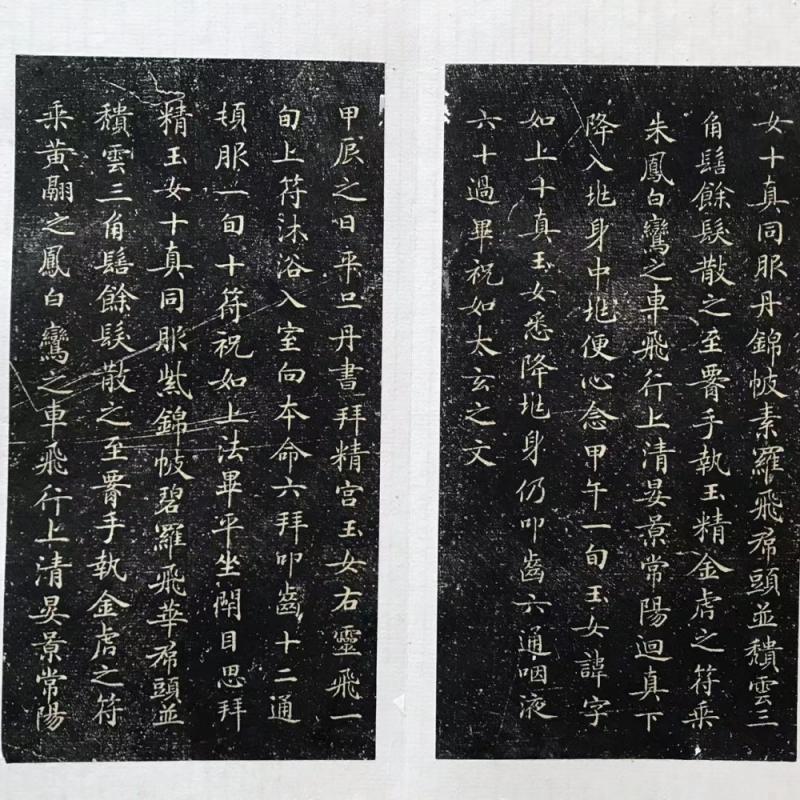 女十真同服丹錦帔素羅飛帬頭並穨雲三
角髻餘髮散之至署手執玉精金虎之符乘
朱鳳白鸞之車飛行上清晏景常陽迴真下
降入兆身中兆便心念甲午一旬玉女諱字
如上千真玉女悉降兆身仍叩齒六通咽液
六十過畢祝如太玄之文
甲辰之日平旦丹書拜精宮玉女右靈飛一
旬上符沐浴入室向本命六拜叩齒十二通
頓服一旬十符祝如上法畢平坐閇目思拜
精玉女十真同服紫錦帔碧羅飛華帬頭並
穨雲三角髻餘髮散之至署手執金虎之符
乘黃翮之鳳白鸞之車飛行上清晏景常陽